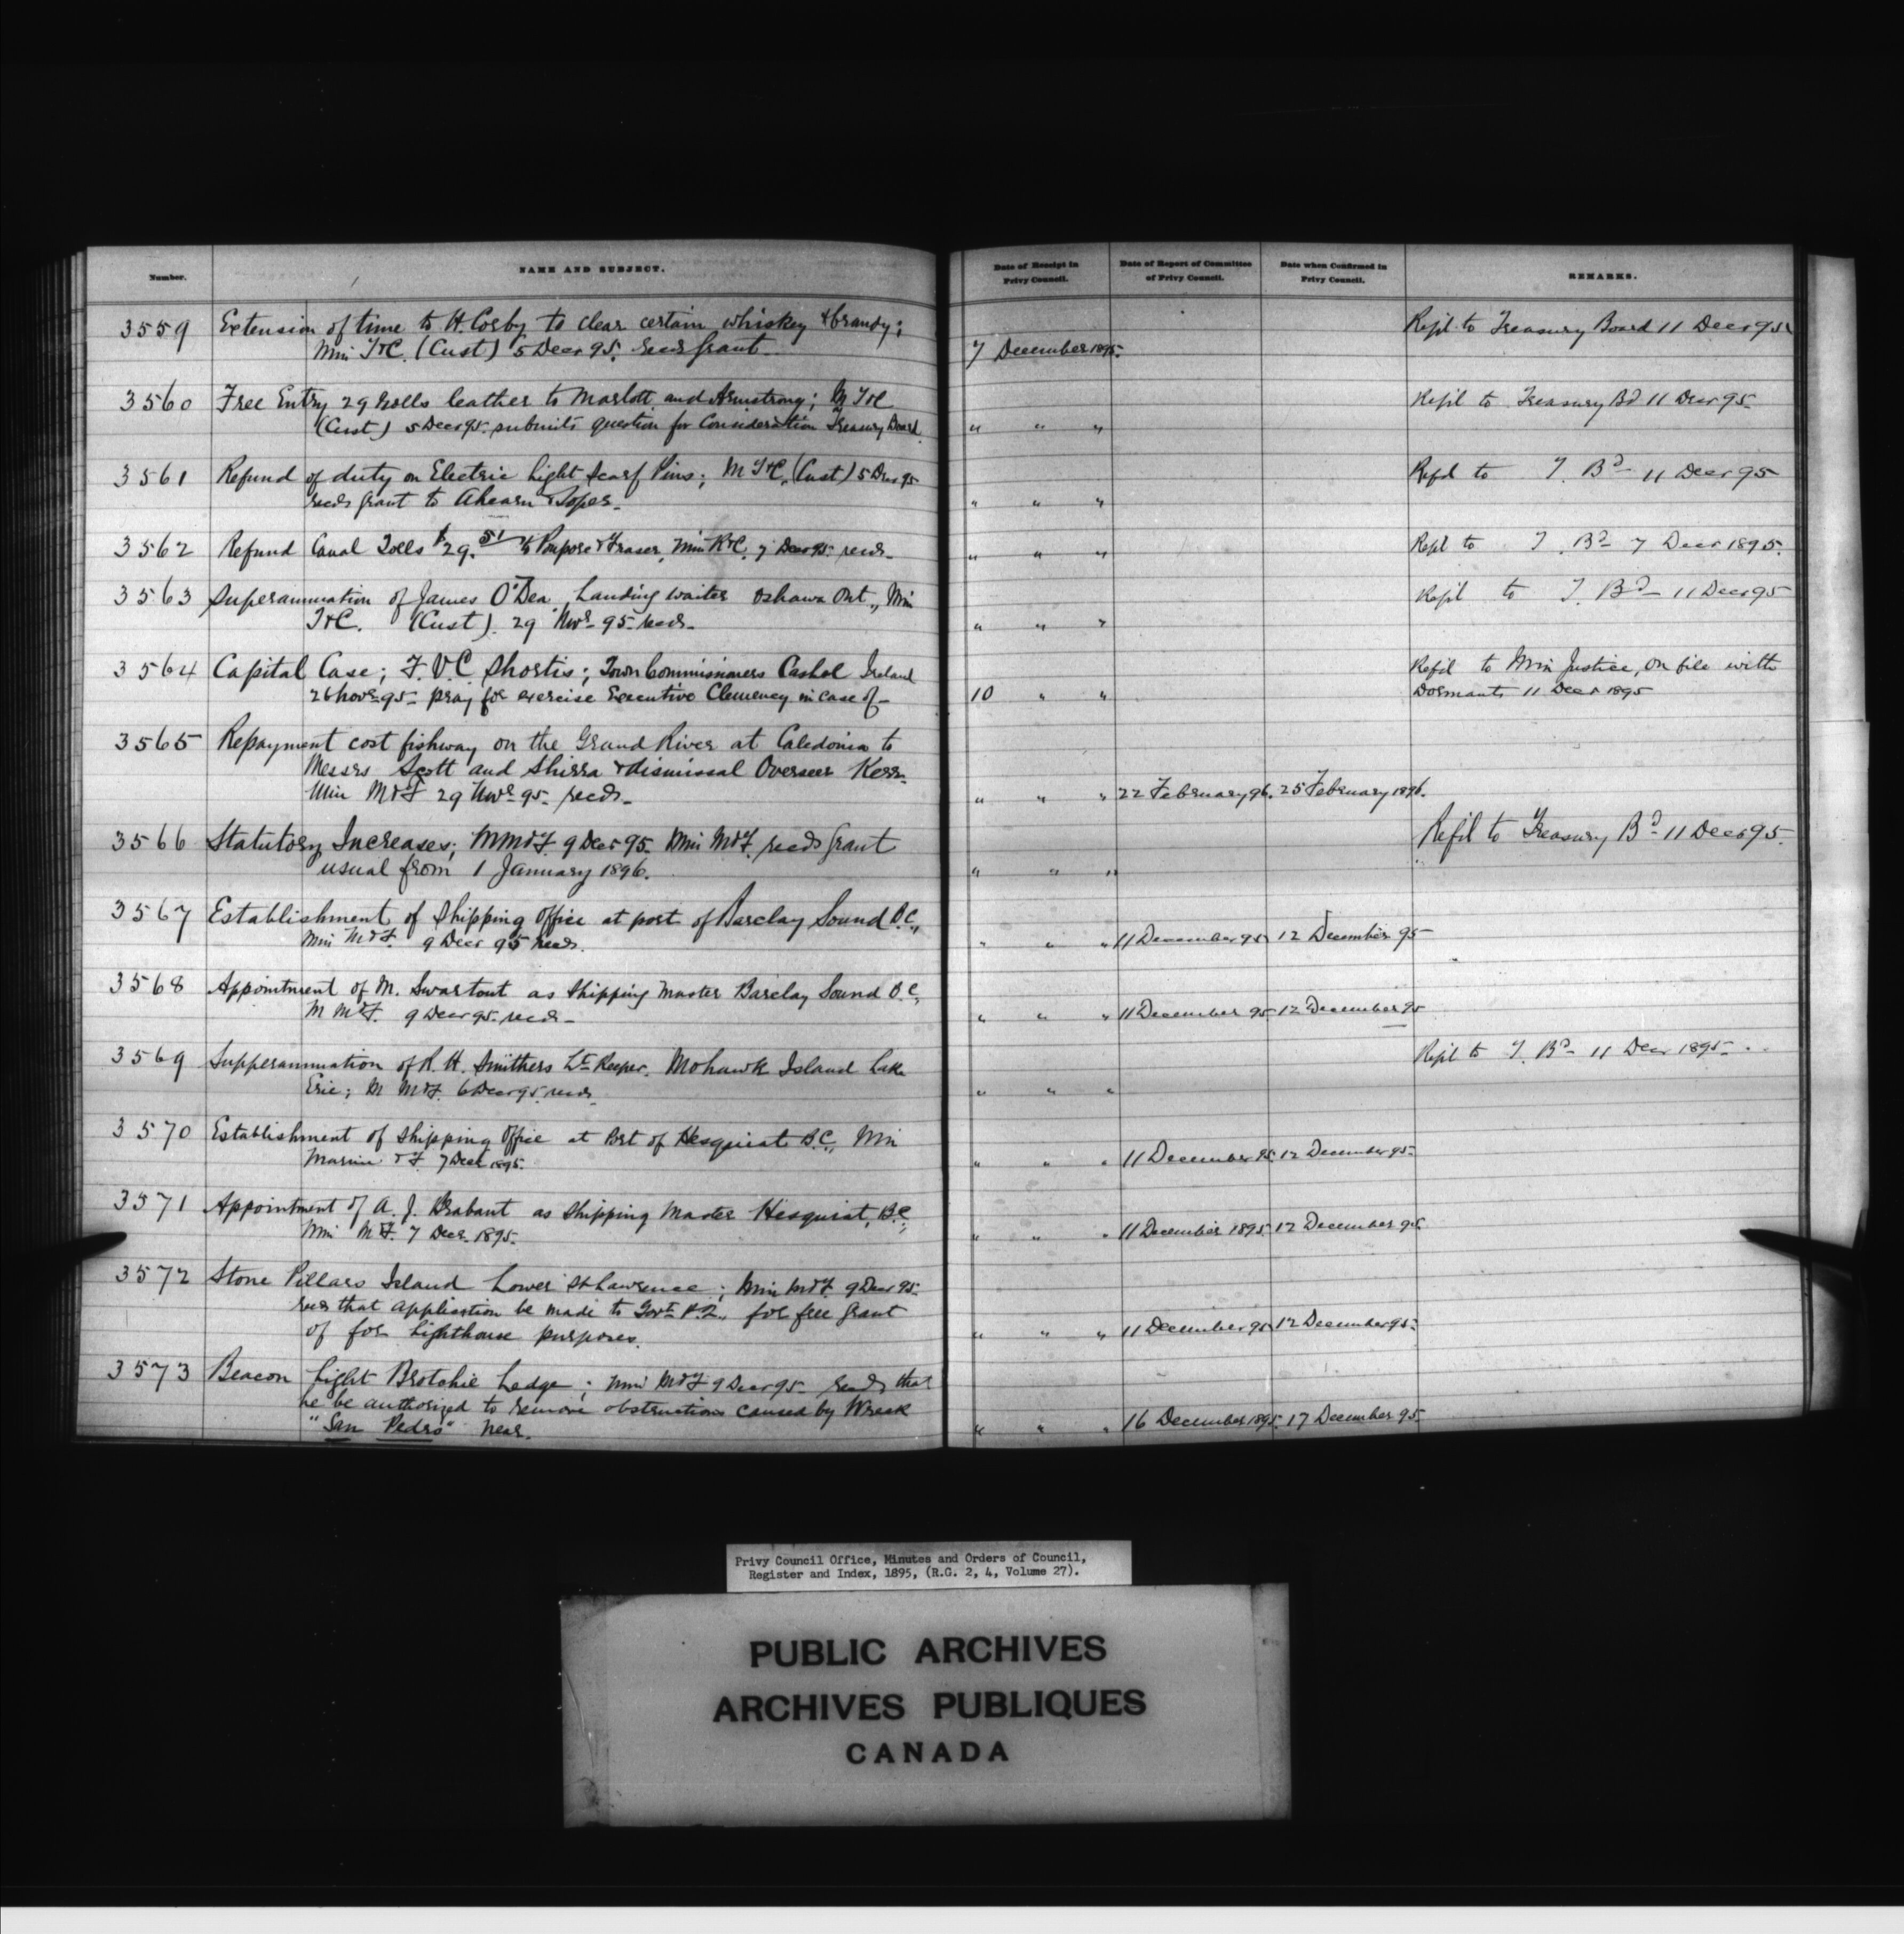 Number. NAME AND SUBJECT. Date of Receipt in Privy Council. Date of Report of Committee of Privy Council. Date when Confirmed in Privy Council. REMARKS.
3559 Extension of time to H. Corby to clear certain whiskey & brandy; Refd to Treasury Board 11 Decr 95
Min T&C. (Cust) 5 Decr 95. recds grant. 7 December 1895.
3560 Free Entry 29 Rolls leather to Marlott and Armstrong; M T&C Refd to Treasury Bd 11 Decr 95.
(Cust) 5 Decr 95. submits question for Consideration Treasury Board. " " "
3561 Refund of duty on Electric Light Scarf Pins; M T&C. (Cust) 5 Decr 95 Refd to T. Bd 11 Decr 95
recds grant to Ahearn & Soper. " " "
3562 Refund Canal Tolls $29.51 to Poupore & Fraser, Min R&C. 7 Decr 95 recds. " " " Refd to T. Bd 7 Decr 1895.
3563 Superannuation of James O'Dea Landing waiter Oshawa Ont., Min Refd to T. Bd 11 Decr 95
T&C. (Cust). 29 Novr 95 recds. " " "
3564 Capital Case; F. V. C. Shortis; Town Commissioners Cashel Ireland Refd to Min Justice, on file with
26 Novr 95 pray for exercise Executive Clemency in case of 10 " " Dormants 11 Decr 1895
3565 Repayment cost fishway on the Grand River at Caledonia to
Messrs Scott and Shirra & dismissal Overseer Kerr.
Min M&F 29 Novr 95. recds. " " " 22 February 96. 25 February 1896.
3566 Statutory Increases; MM&F. 9 Decr 95. Min M&F. recds grant Refd to Treasury Bd 11 Decr 95.
usual from 1 January 1896. " " "
3567 Establishment of Shipping Office at port of Barclay Sound B.C.,
Min M&F. 9 Decr 95 recds. " " " 11 December 95 12 December 95
3568 Appointment of M. Swartout as Shipping Master Barclay Sound B.C.,
M M&F. 9 Decr 95. recds. " " " 11 December 95 12 December 95
3569 Supperannuation of R. H. Smithers Lt Keeper. Mohawk Island Lake Refd to T. Bd 11 Decr 1895.
Erie; M M&F. 6 Decr 95. recds. " " "
3570 Establishment of Shipping Office at Port of Hesquiat B.C., Min
Marine & F. 7 Decr 1895. " " " 11 December 95. 12 December 95.
3571 Appointment of A. J. Brabant as Shipping Master Hesquiat, B.C.,
Min M&F. 7 Decr. 1895. " " " 11 December 1895. 12 December 95.
3572 Stone Pillars Island Lower St Lawrence; Min M&F. 9 Decr 95.
recds that application be made to Govt P.Q., for free grant
of for Lighthouse purposes. " " " 11 December 95 12 December 95.
3573 Beacon Light Brotchie Ledge; Min M&F 9 Decr 95 recds that
he be authorized to remove obstructions caused by Wreck
"San Pedro" near. " " " 16 December 1895. 17 December 95.
Privy Council Office, Minutes and Orders of Council,
Register and Index, 1895, (R.G. 2, 4, Volume 27).
PUBLIC ARCHIVES
ARCHIVES PUBLIQUES
CANADA